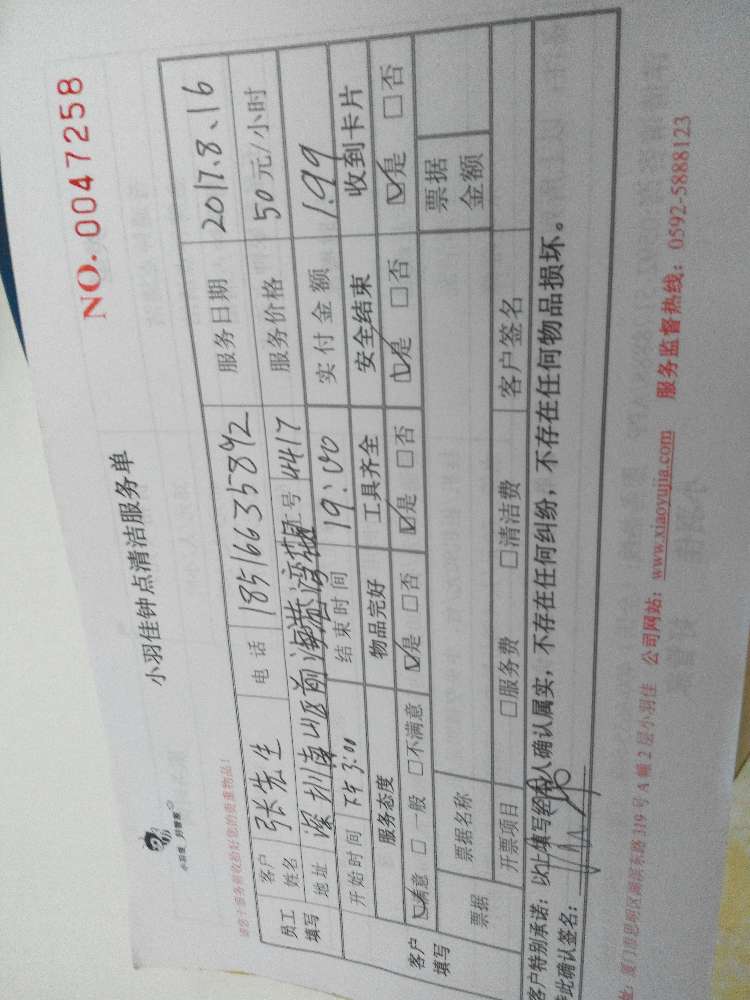 小羽佳 好管家
小羽佳钟点清洁服务单
NO.0047258
请您于服务前收拾好您的贵重物品!
员工填写 客户姓名 张宏生 电话 18516635892 服务日期 2017.8.16
地址 深圳南山区前海港湾 工号 4417 服务价格 50元/小时
开始时间 下午3:00 结束时间 19:00 实付金额 199
客户填写 服务态度 物品完好 工具齐全 安全结束 收到卡片
☑满意 □一般 □不满意 ☑是 □否 ☑是 □否 ☑是 □否 ☑是 □否
票据 票据名称 票据金额
开票项目 □服务费 □清洁费 客户签名
客户特别承诺：以上填写经本人确认属实，不存在任何纠纷，不存在任何物品损坏。
特此确认签名：
址：厦门市思明区湖滨东路319号A幢2层小羽佳 公司网站：www.xiaoyujia.com 服务监督热线：0592-5888123